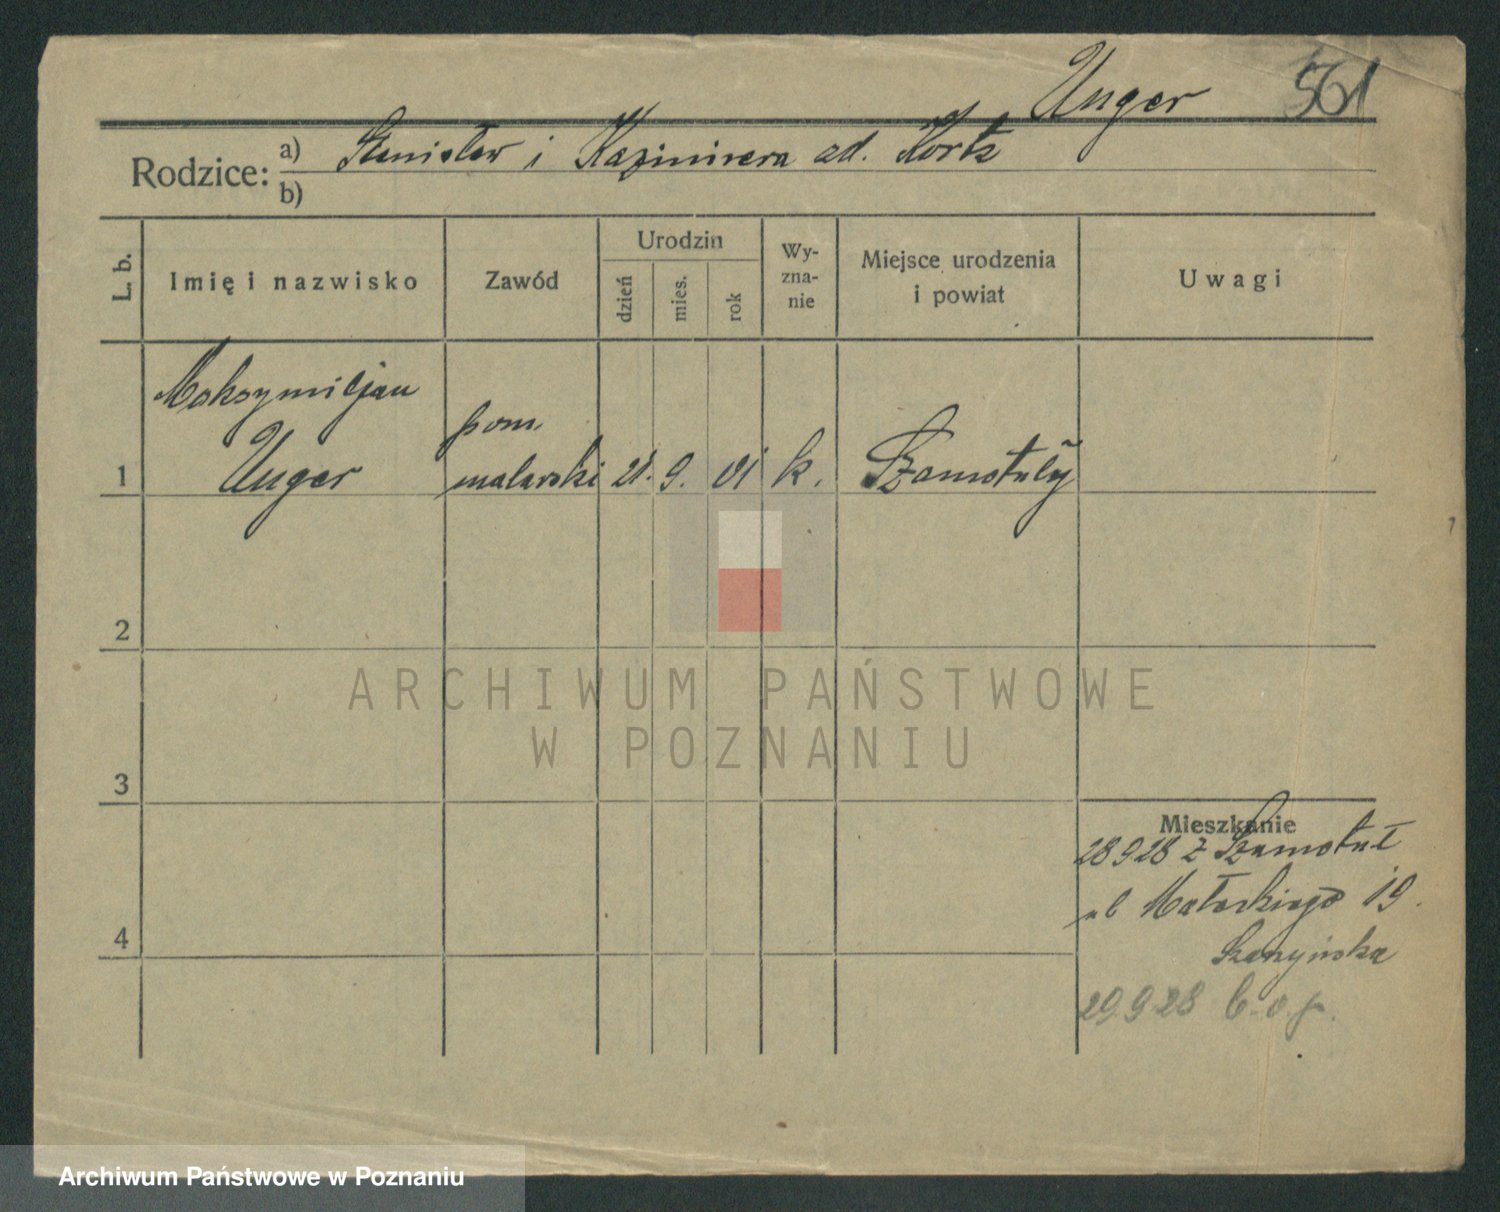 Unger 561
Rodzice: a) Stanisław i Kazimiera zd. Kortz
b)
L. b. Imię i nazwisko Zawód Urodzin dzień mies. rok Wy-zna-nie Miejsce urodzenia i powiat Uwagi
Maksymiljan
pom.
1 Unger malarski 21. 9. 01 k. Szamotuły
2
ARCHIWUM PAŃSTWOWE
W POZNANIU
3
Mieszkanie
28 9 28 z Szamotuł
ul 19.
4
29.9.28
Archiwum Państwowe w Poznaniu